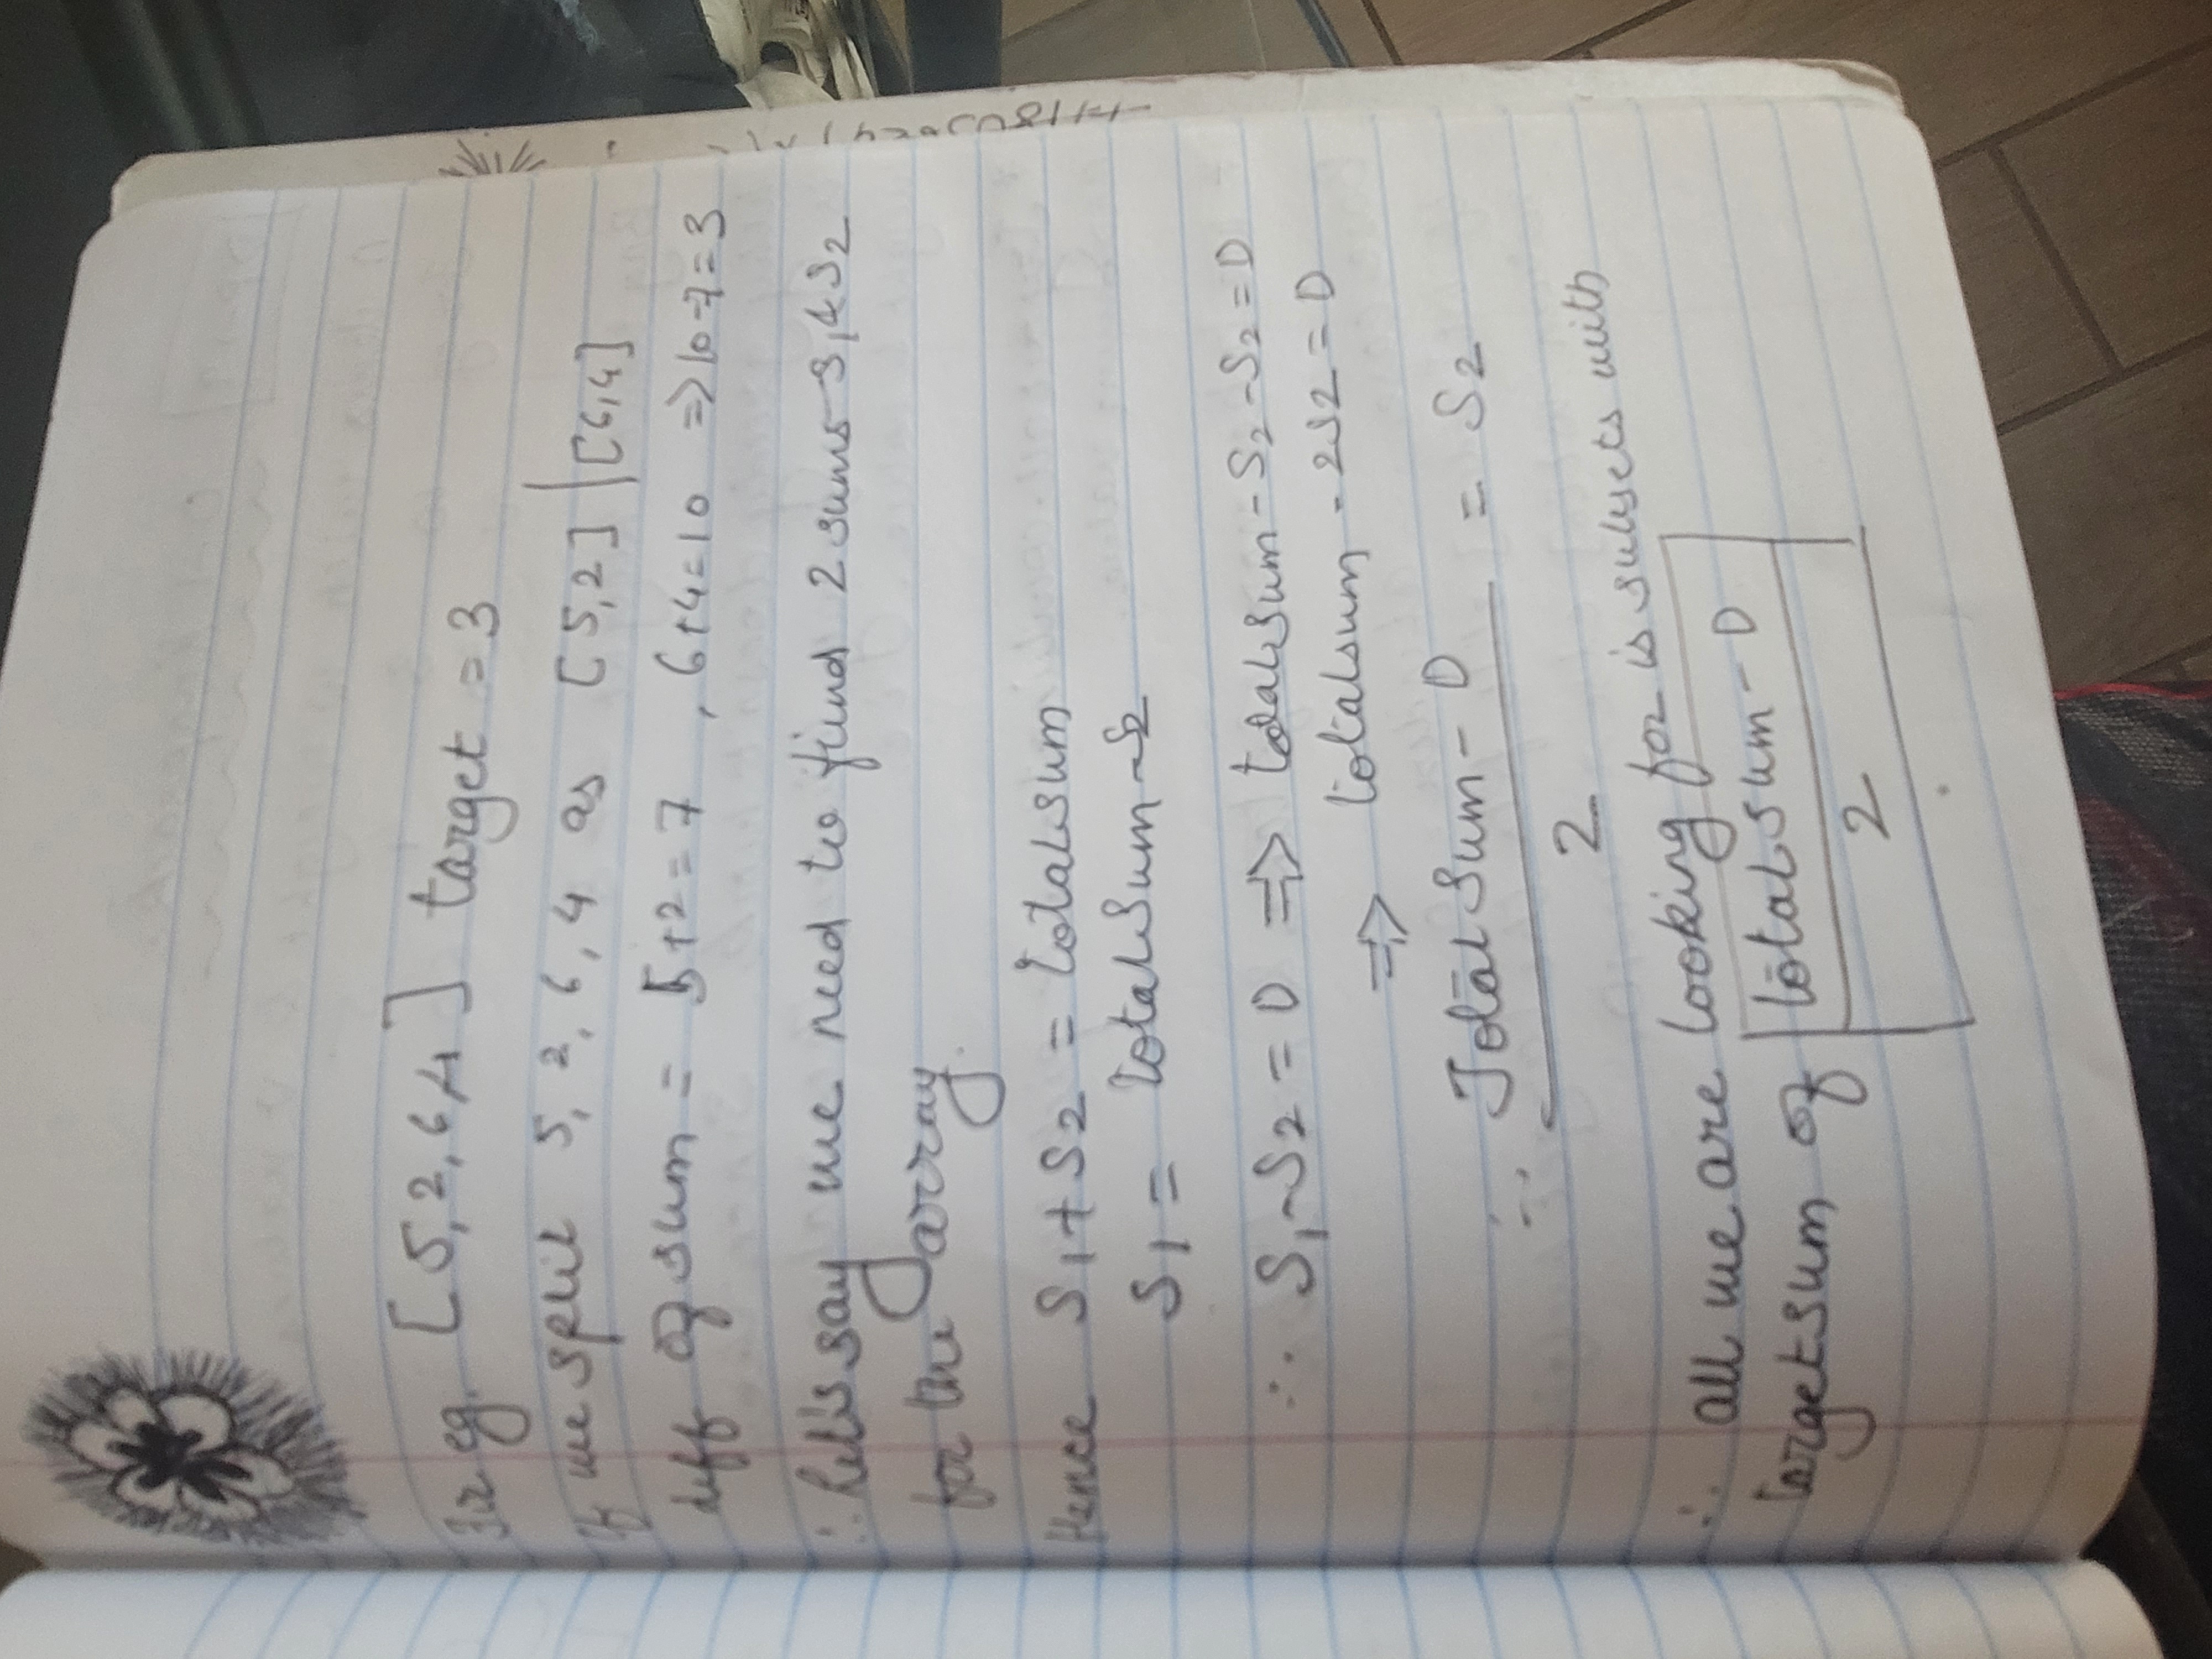 For eg. [5,2,6,4] target = 3
If we split 5, 2, 6, 4 as [5,2] | [6,4]
diff of sum = 5+2=7 , 6+4=10 => 10-7=3
∴ Let's say we need to find 2 sums S1 & S2
for the array.
Hence S1+S2 = totalsum
S1 = totalSum-S2
∴ S1-S2 = D => totalsum-S2-S2=D
=> totalsum - 2S2 = D
∴ Total Sum - D = S2
2
∴ all we are looking for is subsets with
targetsum of totalsum - D
2